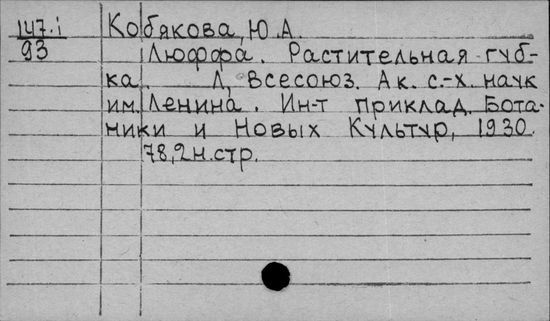 147.i Кобякова, Ю.А.
93 Люффа. Растительная губ-
ка. Л, Всесоюз. Ак. с.-х. наук
им. Ленина. Ин-т приклад. Бота-
ники и новых культур, 1930.
78,2н.стр.